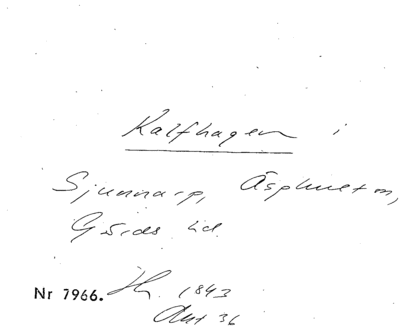 Kalfhagen i
Sjunnarp, Äsphult sn,
Gärds hd.
Nr 7966. 1843
Akt 36